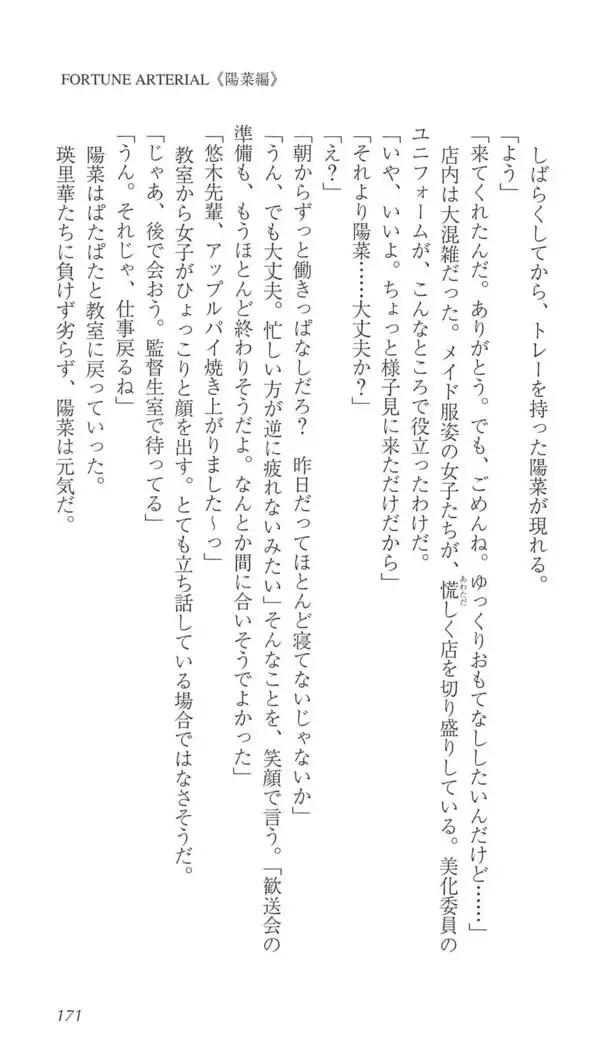 FORTUNE ARTERIAL《陽菜編》
しばらくしてから、トレーを持った陽菜が現れる。
「よう」
「来てくれたんだ。ありがとう。でも、ごめんね。ゆっくりおもてなししたいんだけど……」
店内は大混雑だった。メイド服姿の女子たちが、慌しく店を切り盛りしている。美化委員の
あわただ
ユニフォームが、こんなところで役立ったわけだ。
「いや、いいよ。ちょっと様子見に来ただけだから」
「それより陽菜……大丈夫か？」
「え？」
「朝からずっと働きっぱなしだろ？　昨日だってほとんど寝てないじゃないか」
「うん、でも大丈夫。忙しい方が逆に疲れないみたい」そんなことを、笑顔で言う。「歓送会の
準備も、もうほとんど終わりそうだよ。なんとか間に合いそうでよかった」
「悠木先輩、アップルパイ焼き上がりました～っ」
教室から女子がひょっこりと顔を出す。とても立ち話している場合ではなさそうだ。
「じゃあ、後で会おう。監督生室で待ってる」
「うん。それじゃ、仕事戻るね」
陽菜はぱたぱたと教室に戻っていった。
瑛里華たちに負けず劣らず、陽菜は元気だ。
171